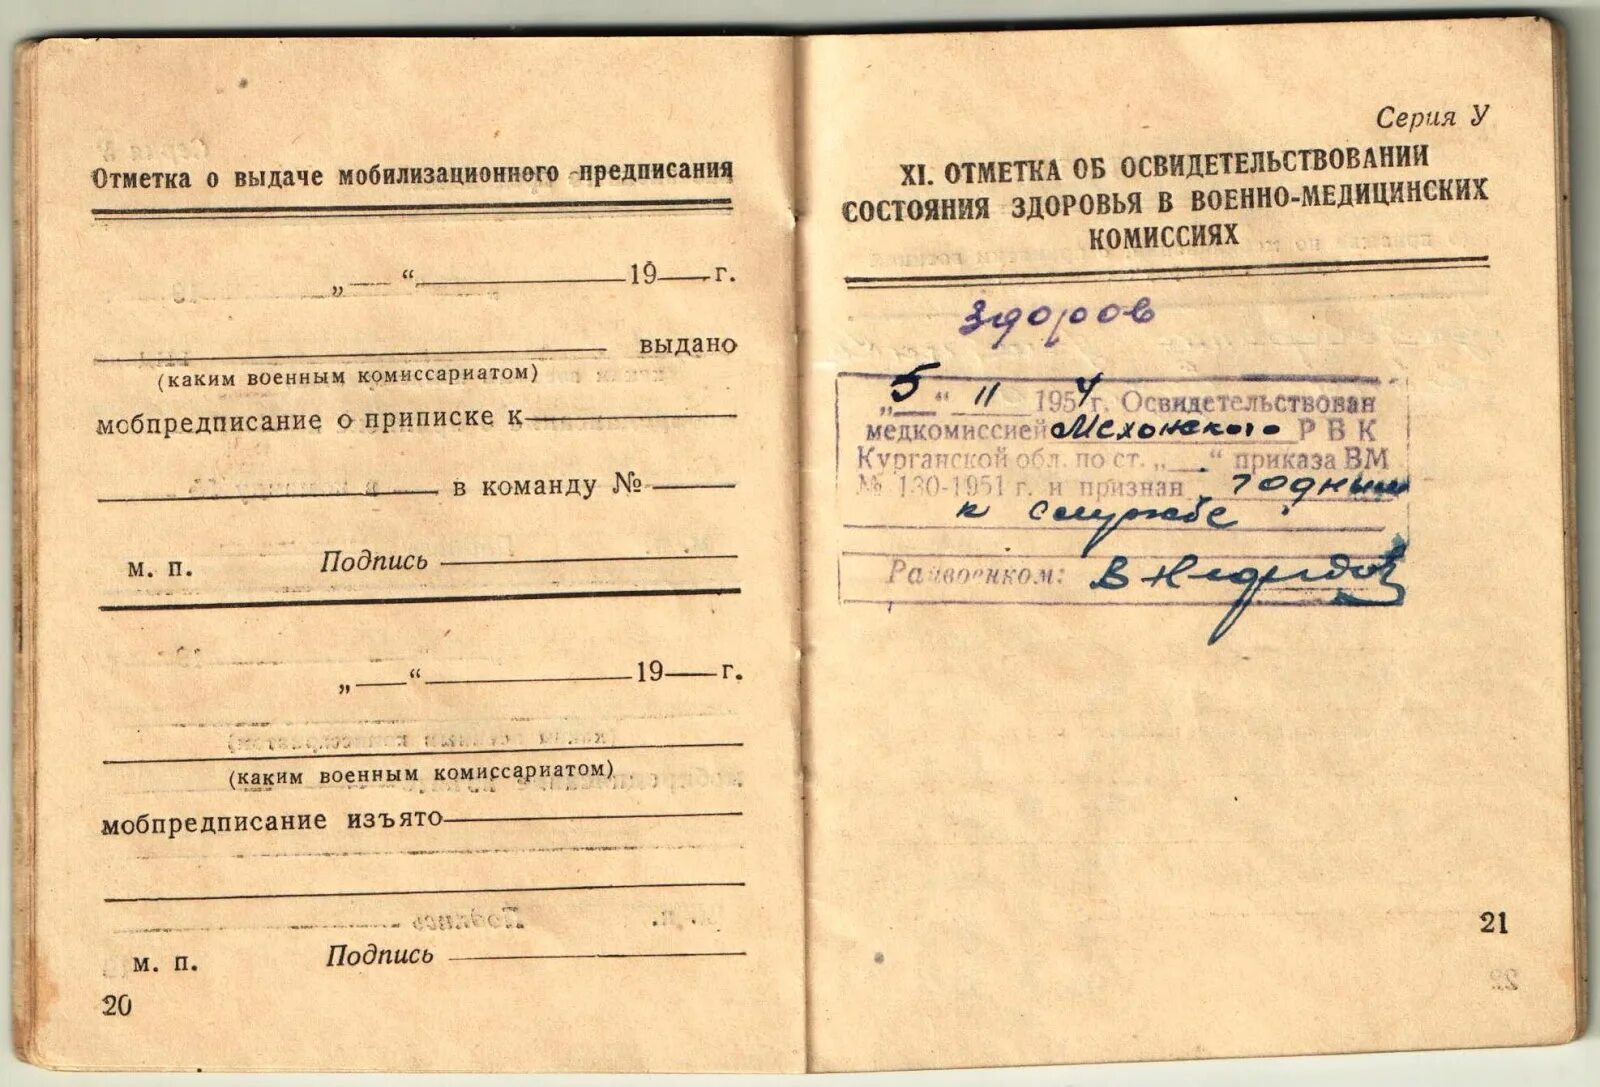 Отметка о выдаче мобилизационного предписания
„ “ 19 г.
выдано
(каким военным комиссариатом)
мобпредписание о приписке к
в команду №
м. п. Подпись
„ “ 19 г.
(каким военным комиссариатом)
мобпредписание изъято
м. п. Подпись
20
Серия У
XI. ОТМЕТКА ОБ ОСВИДЕТЕЛЬСТВОВАНИИ
СОСТОЯНИЯ ЗДОРОВЬЯ В ВОЕННО-МЕДИЦИНСКИХ
КОМИССИЯХ
здоров
„5“ II 1954 г. Освидетельствован
медкомиссией Мехонского РВК
Курганской обл. по ст. „ “ приказа ВМ
№ 130-1951 г. и признан годным
к службе
Райвоенком:
21